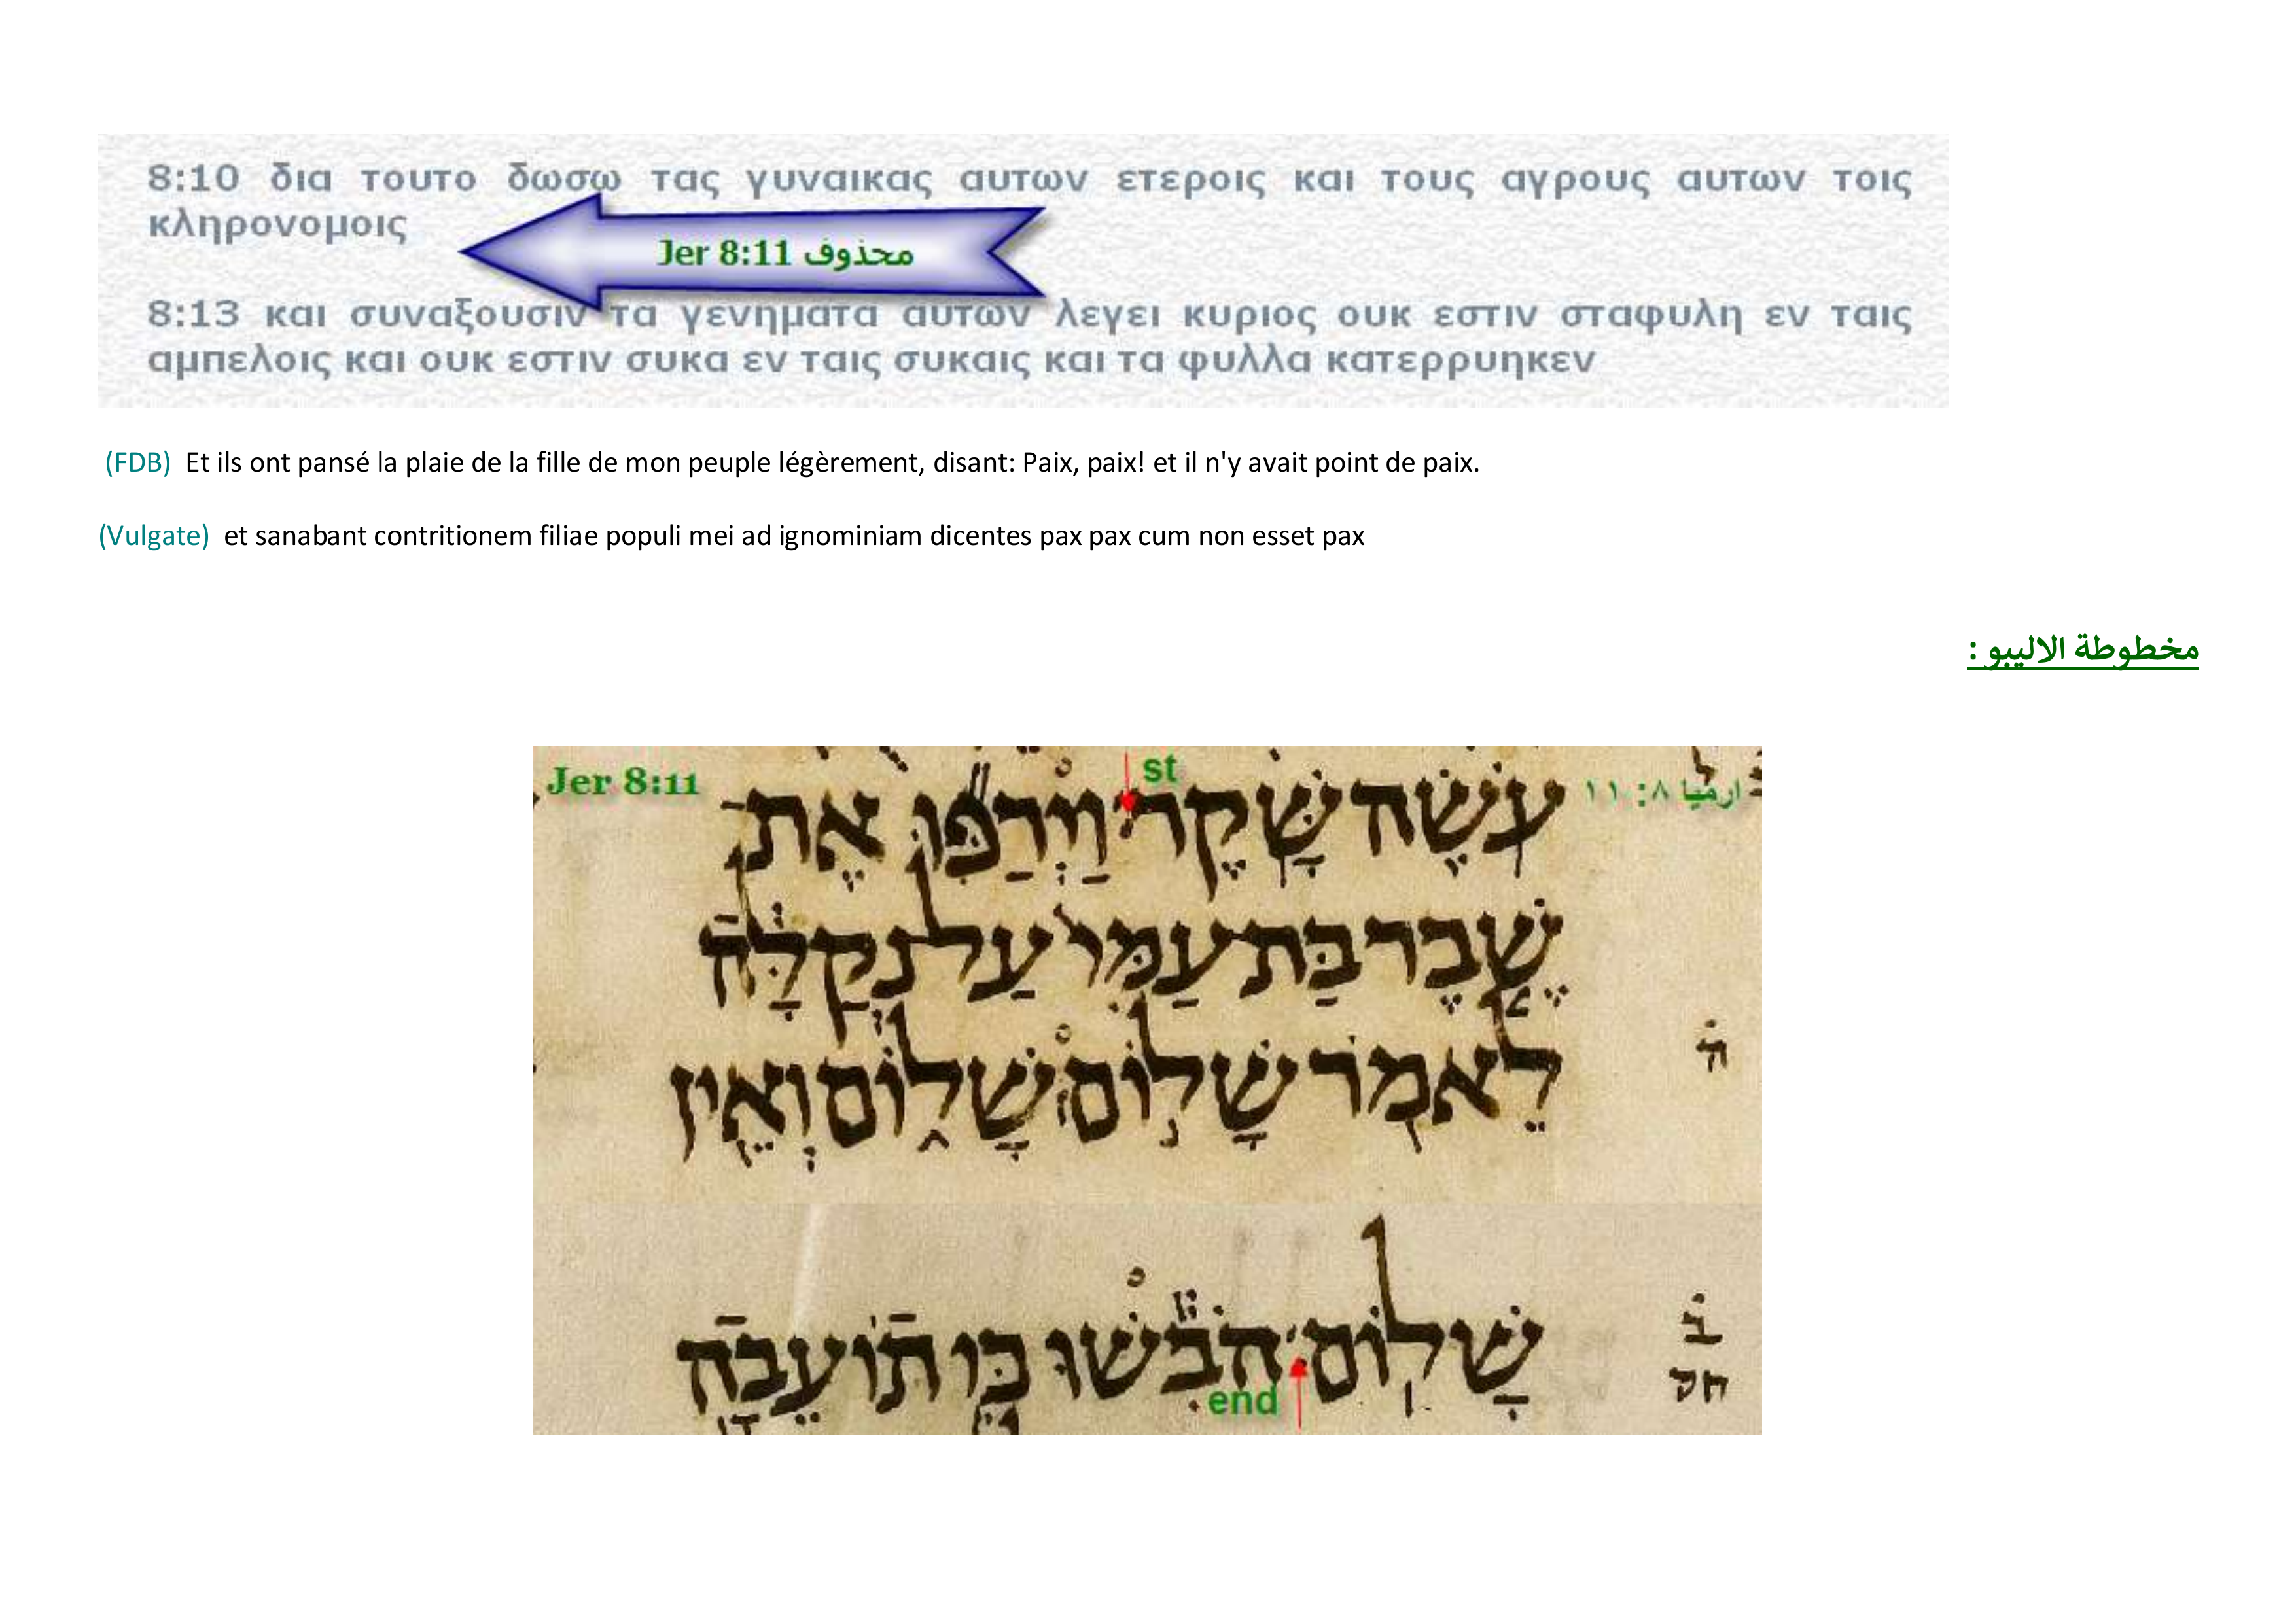 8:10 δια τουτο δωσω τας γυναικας αυτων ετεροις και τους αγρους αυτων τοις
κληρονομοις
Jer 8:11 محذوف
8:13 και συναξουσιν τα γενηματα αυτων λεγει κυριος ουκ εστιν σταφυλη εν ταις
αμπελοις και ουκ εστιν συκα εν ταις συκαις και τα φυλλα κατερρυηκεν
(FDB) Et ils ont pansé la plaie de la fille de mon peuple légèrement, disant: Paix, paix! et il n'y avait point de paix.
(Vulgate) et sanabant contritionem filiae populi mei ad ignominiam dicentes pax pax cum non esset pax
مخطوطة الاليبو :
Jer 8:11
st
ارميا ٨: ١١
עֹשֶׂה שָּׁקֶר׃ וַיְרַפּוּ אֶת־
שֶׁבֶר בַּת עַמִּי עַל נְקַלָּה
לֵאמֹר שָׁלוֹם שָׁלוֹם וְאֵין
ה̇
שָׁלוֹם׃ הֹבִשׁוּ כִּי תוֹעֵבָה
ב̇
חס
end